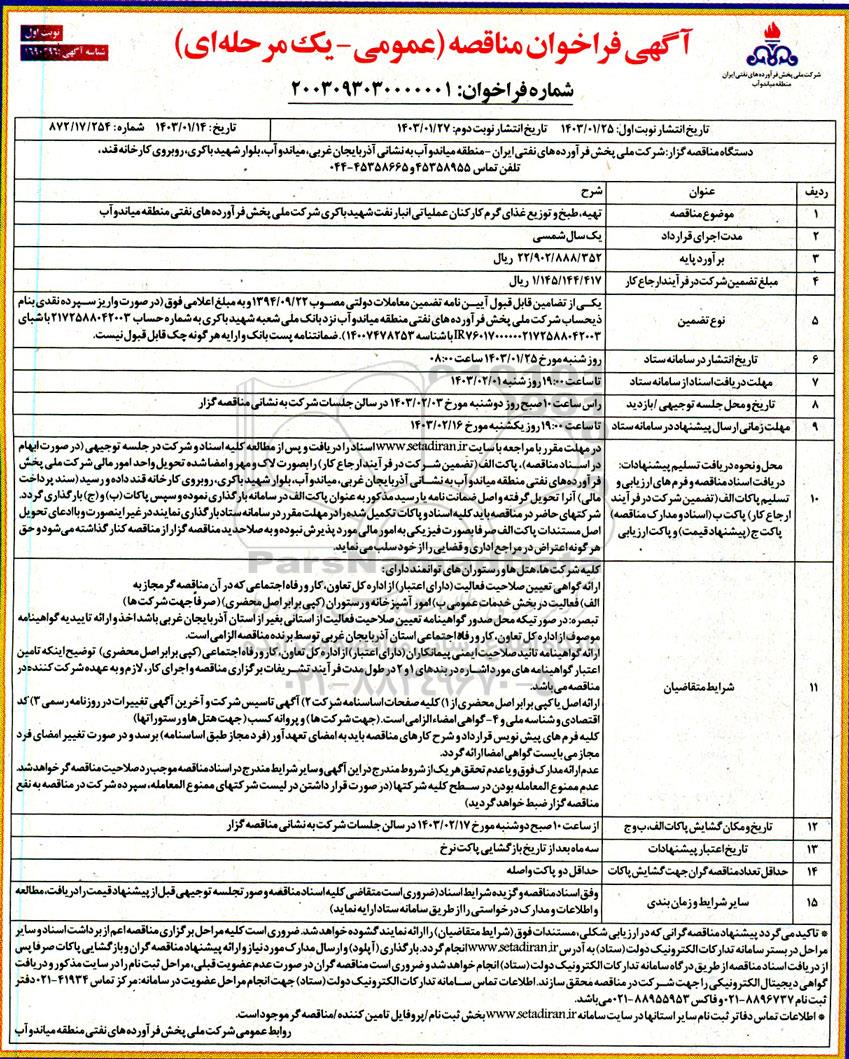 نوبت اول
شناسه آگهی:
آگهی فراخوان مناقصه (عمومی - یک مرحله‌ای)
شرکت ملی پخش فرآورده‌های نفتی ایران
منطقه میاندوآب
شماره فراخوان: ۲۰۰۳۰۹۳۰۳۰۰۰۰۰۰۱
تاریخ انتشار نوبت اول: ۱۴۰۳/۰۱/۲۵ تاریخ انتشار نوبت دوم: ۱۴۰۳/۰۱/۲۷ تاریخ: ۱۴۰۳/۰۱/۱۴ شماره: ۸۷۲/۱۷/۲۵۴
دستگاه مناقصه گزار: شرکت ملی پخش فرآورده‌های نفتی ایران – منطقه میاندوآب به نشانی آذربایجان غربی، میاندوآب، بلوار شهید باکری، روبروی کارخانه قند،
تلفن تماس ۴۵۳۵۸۹۵۵ و ۴۵۳۵۸۶۶۵-۰۴۴
ردیف عنوان شرح
۱ موضوع مناقصه تهیه، طبخ و توزیع غذای گرم کارکنان عملیاتی انبار نفت شهید باکری شرکت ملی پخش فرآورده‌های نفتی منطقه میاندوآب
۲ مدت اجرای قرارداد یک سال شمسی
۳ برآورد پایه ۲۲/۹۰۲/۸۸۸/۳۵۲ ریال
۴ مبلغ تضمین شرکت در فرآیند ارجاع کار ۱/۱۴۵/۱۴۴/۴۱۷ ریال
۵ نوع تضمین یکی از تضامین قابل قبول آیین نامه تضمین معاملات دولتی مصوب ۱۳۹۴/۰۹/۲۲ و به مبلغ اعلامی فوق (در صورت واریز سپرده نقدی بنام
ذیحساب شرکت ملی پخش فرآورده‌های نفتی منطقه میاندوآب نزد بانک ملی شعبه شهید باکری به شماره حساب ۲۱۷۲۵۸۸۰۴۲۰۰۳ با شبای
IR۷۶۰۱۷۰۰۰۰۰۰۲۱۷۲۵۸۸۰۴۲۰۰۳ با شناسه ۱۴۰۰۷۴۷۸۲۵۳). ضمانتنامه پست بانک و ارایه هر گونه چک قابل قبول نیست.
۶ تاریخ انتشار در سامانه ستاد روز شنبه مورخ ۱۴۰۳/۰۱/۲۵ ساعت ۰۸:۰۰
۷ مهلت دریافت اسناد از سامانه ستاد تا ساعت ۱۹:۰۰ روز شنبه ۱۴۰۳/۰۲/۰۱
۸ تاریخ و محل جلسه توجیهی / بازدید راس ساعت ۱۰ صبح روز دوشنبه مورخ ۱۴۰۳/۰۲/۰۳ در سالن جلسات شرکت به نشانی مناقصه گزار
۹ مهلت زمانی ارسال پیشنهاد در سامانه ستاد تا ساعت ۱۹:۰۰ روز یکشنبه مورخ ۱۴۰۳/۰۲/۱۶
۱۰ محل و نحوه دریافت تسلیم پیشنهادات:
دریافت اسناد مناقصه و فرم های ارزیابی و
تسلیم پاکات الف (تضمین شرکت در فرآیند
ارجاع کار) پاکت ب (اسناد و مدارک مناقصه)
پاکت ج (پیشنهاد قیمت) و پاکت ارزیابی
در مهلت مقرر با مراجعه با سایت www.setadiran.ir اسناد را دریافت و پس از مطالعه کلیه اسناد و شرکت در جلسه توجیهی (در صورت ابهام
در اسناد مناقصه)، پاکت الف (تضمین شرکت در فرآیند ارجاع کار) را بصورت لاک و مهر و امضا شده تحویل واحد امور مالی شرکت ملی پخش
فرآورده‌های نفتی منطقه میاندوآب به نشانی آذربایجان غربی، میاندوآب، بلوار شهید باکری، روبروی کارخانه قند داده و رسید (سند پرداخت
مالی) آنرا تحویل گرفته و اصل ضمانت نامه یا رسید مذکور به عنوان پاکت الف در سامانه بارگذاری نموده و سپس پاکات (ب) و (ج) بارگذاری گردد.
شرکتهای حاضر در مناقصه باید کلیه اسناد و پاکات تکمیل شده را در مهلت مقرر در سامانه ستاد بارگذاری نمایند در غیر اینصورت و با ادعای تحویل
اصل مستندات پاکت الف صرفا بصورت فیزیکی به امور مالی مورد پذیرش نبوده و به صلاحدید مناقصه گزار از مناقصه کنار گذاشته می‌شود و حق
هر گونه اعتراض در مراجع اداری و قضایی را از خود سلب می‌نماید.
۱۱ شرایط متقاضیان کلیه شرکت‌ها، هتل‌ها و رستوران های توانمند دارای:
ارائه گواهی تعیین صلاحیت فعالیت (دارای اعتبار) از اداره کل تعاون، کار و رفاه اجتماعی که در آن مناقصه گر مجاز به
الف) فعالیت در بخش خدمات عمومی ب) امور آشپزخانه و رستوران (کپی برابر اصل محضری) (صرفاً جهت شرکت ها)
تبصره: در صورتیکه محل صدور گواهینامه تعیین صلاحیت فعالیت از استانی بغیر از استان آذربایجان غربی باشد اخذ و ارائه تاییدیه گواهینامه
موصوف از اداره کل تعاون، کار و رفاه اجتماعی استان آذربایجان غربی توسط برنده مناقصه الزامی است.
ارائه گواهینامه تائید صلاحیت ایمنی پیمانکاران (دارای اعتبار) از اداره کل تعاون، کار و رفاه اجتماعی (کپی برابر اصل محضری) توضیح اینکه تامین
اعتبار گواهینامه های مورد اشاره در بندهای ۱ و ۲ در طول مدت فرآیند تشریفات برگزاری مناقصه و اجرای کار، لازم و به عهده شرکت کننده در
مناقصه می‌باشد.
ارائه اصل یا کپی برابر اصل محضری از ۱) کلیه صفحات اساسنامه شرکت ۲) آگهی تاسیس شرکت و آخرین آگهی تغییرات در روزنامه رسمی ۳) کد
اقتصادی و شناسه ملی و ۴- گواهی امضاء الزامی است. (جهت شرکت ها) و پروانه کسب (جهت هتل‌ها و رستوراتها)
کلیه فرم های پیش نویس قرارداد و شرح کارهای مناقصه باید به امضای تعهدآور (فرد مجاز طبق اساسنامه) برسد و در صورت تغییر امضای فرد
مجاز می بایست گواهی امضا ارائه گردد.
عدم ارائه مدارک فوق و یا عدم تحقق هر یک از شروط مندرج در این آگهی و سایر شرایط مندرج در اسناد مناقصه موجب رد صلاحیت مناقصه گر خواهد شد.
عدم ممنوع المعامله بودن در سطح کلیه شرکتها (در صورت قرار داشتن در لیست شرکتهای ممنوع المعامله، سپرده شرکت در مناقصه به نفع
مناقصه گزار ضبط خواهد گردید)
۱۲ تاریخ و مکان گشایش پاکات الف، ب و ج از ساعت ۱۰ صبح دوشنبه مورخ ۱۴۰۳/۰۲/۱۷ در سالن جلسات شرکت به نشانی مناقصه گزار
۱۳ تاریخ اعتبار پیشنهادات سه ماه بعد از تاریخ بازگشایی پاکت نرخ
۱۴ حداقل تعداد مناقصه گران جهت گشایش پاکات حداقل دو پاکت واصله
۱۵ سایر شرایط و زمان بندی وفق اسناد مناقصه و گزیده شرایط اسناد (ضروری است متقاضی کلیه اسناد مناقصه و صورتجلسه توجیهی قبل از پیشنهاد قیمت را دریافت، مطالعه
و اطلاعات و مدارک درخواستی را از طریق سامانه ستاد ارایه نماید)
* تاکید می گردد پیشنهاد مناقصه گرانی که در ارزیابی شکلی، مستندات فوق (شرایط متقاضیان) را ارائه نمایند گشوده خواهد شد. ضروری است کلیه مراحل برگزاری مناقصه اعم از برداشت اسناد و سایر
مراحل در بستر سامانه تدارکات الکترونیک دولت (ستاد) به آدرس www.setadiran.ir انجام گردد. بارگذاری (آپلود) و ارسال مدارک مورد نیاز و ارائه پیشنهاد مناقصه گران و بازگشایی پاکات صرفا پس
از دریافت اسناد مناقصه از طریق درگاه سامانه تدارکات الکترونیک دولت (ستاد) انجام خواهد شد و ضروری است مناقصه گران در صورت عدم عضویت قبلی، مراحل ثبت نام را در سایت مذکور و دریافت
گواهی دیجیتال الکترونیکی را جهت شرکت در مناقصه محقق سازند. اطلاعات تماس سامانه تدارکات الکترونیک دولت (ستاد) جهت انجام مراحل عضویت در سامانه: مرکز تماس ۴۱۹۳۴-۰۲۱ دفتر
ثبت نام ۸۸۹۶۷۳۷-۰۲۱ و فاکس ۸۸۹۵۵۹۵۳-۰۲۱ می‌باشد.
* اطلاعات تماس دفاتر ثبت نام سایر استانها در سایت سامانه www.setadiran.ir بخش ثبت نام / پروفایل تامین کننده / مناقصه گر موجود است.
روابط عمومی شرکت ملی پخش فرآورده‌های نفتی منطقه میاندوآب